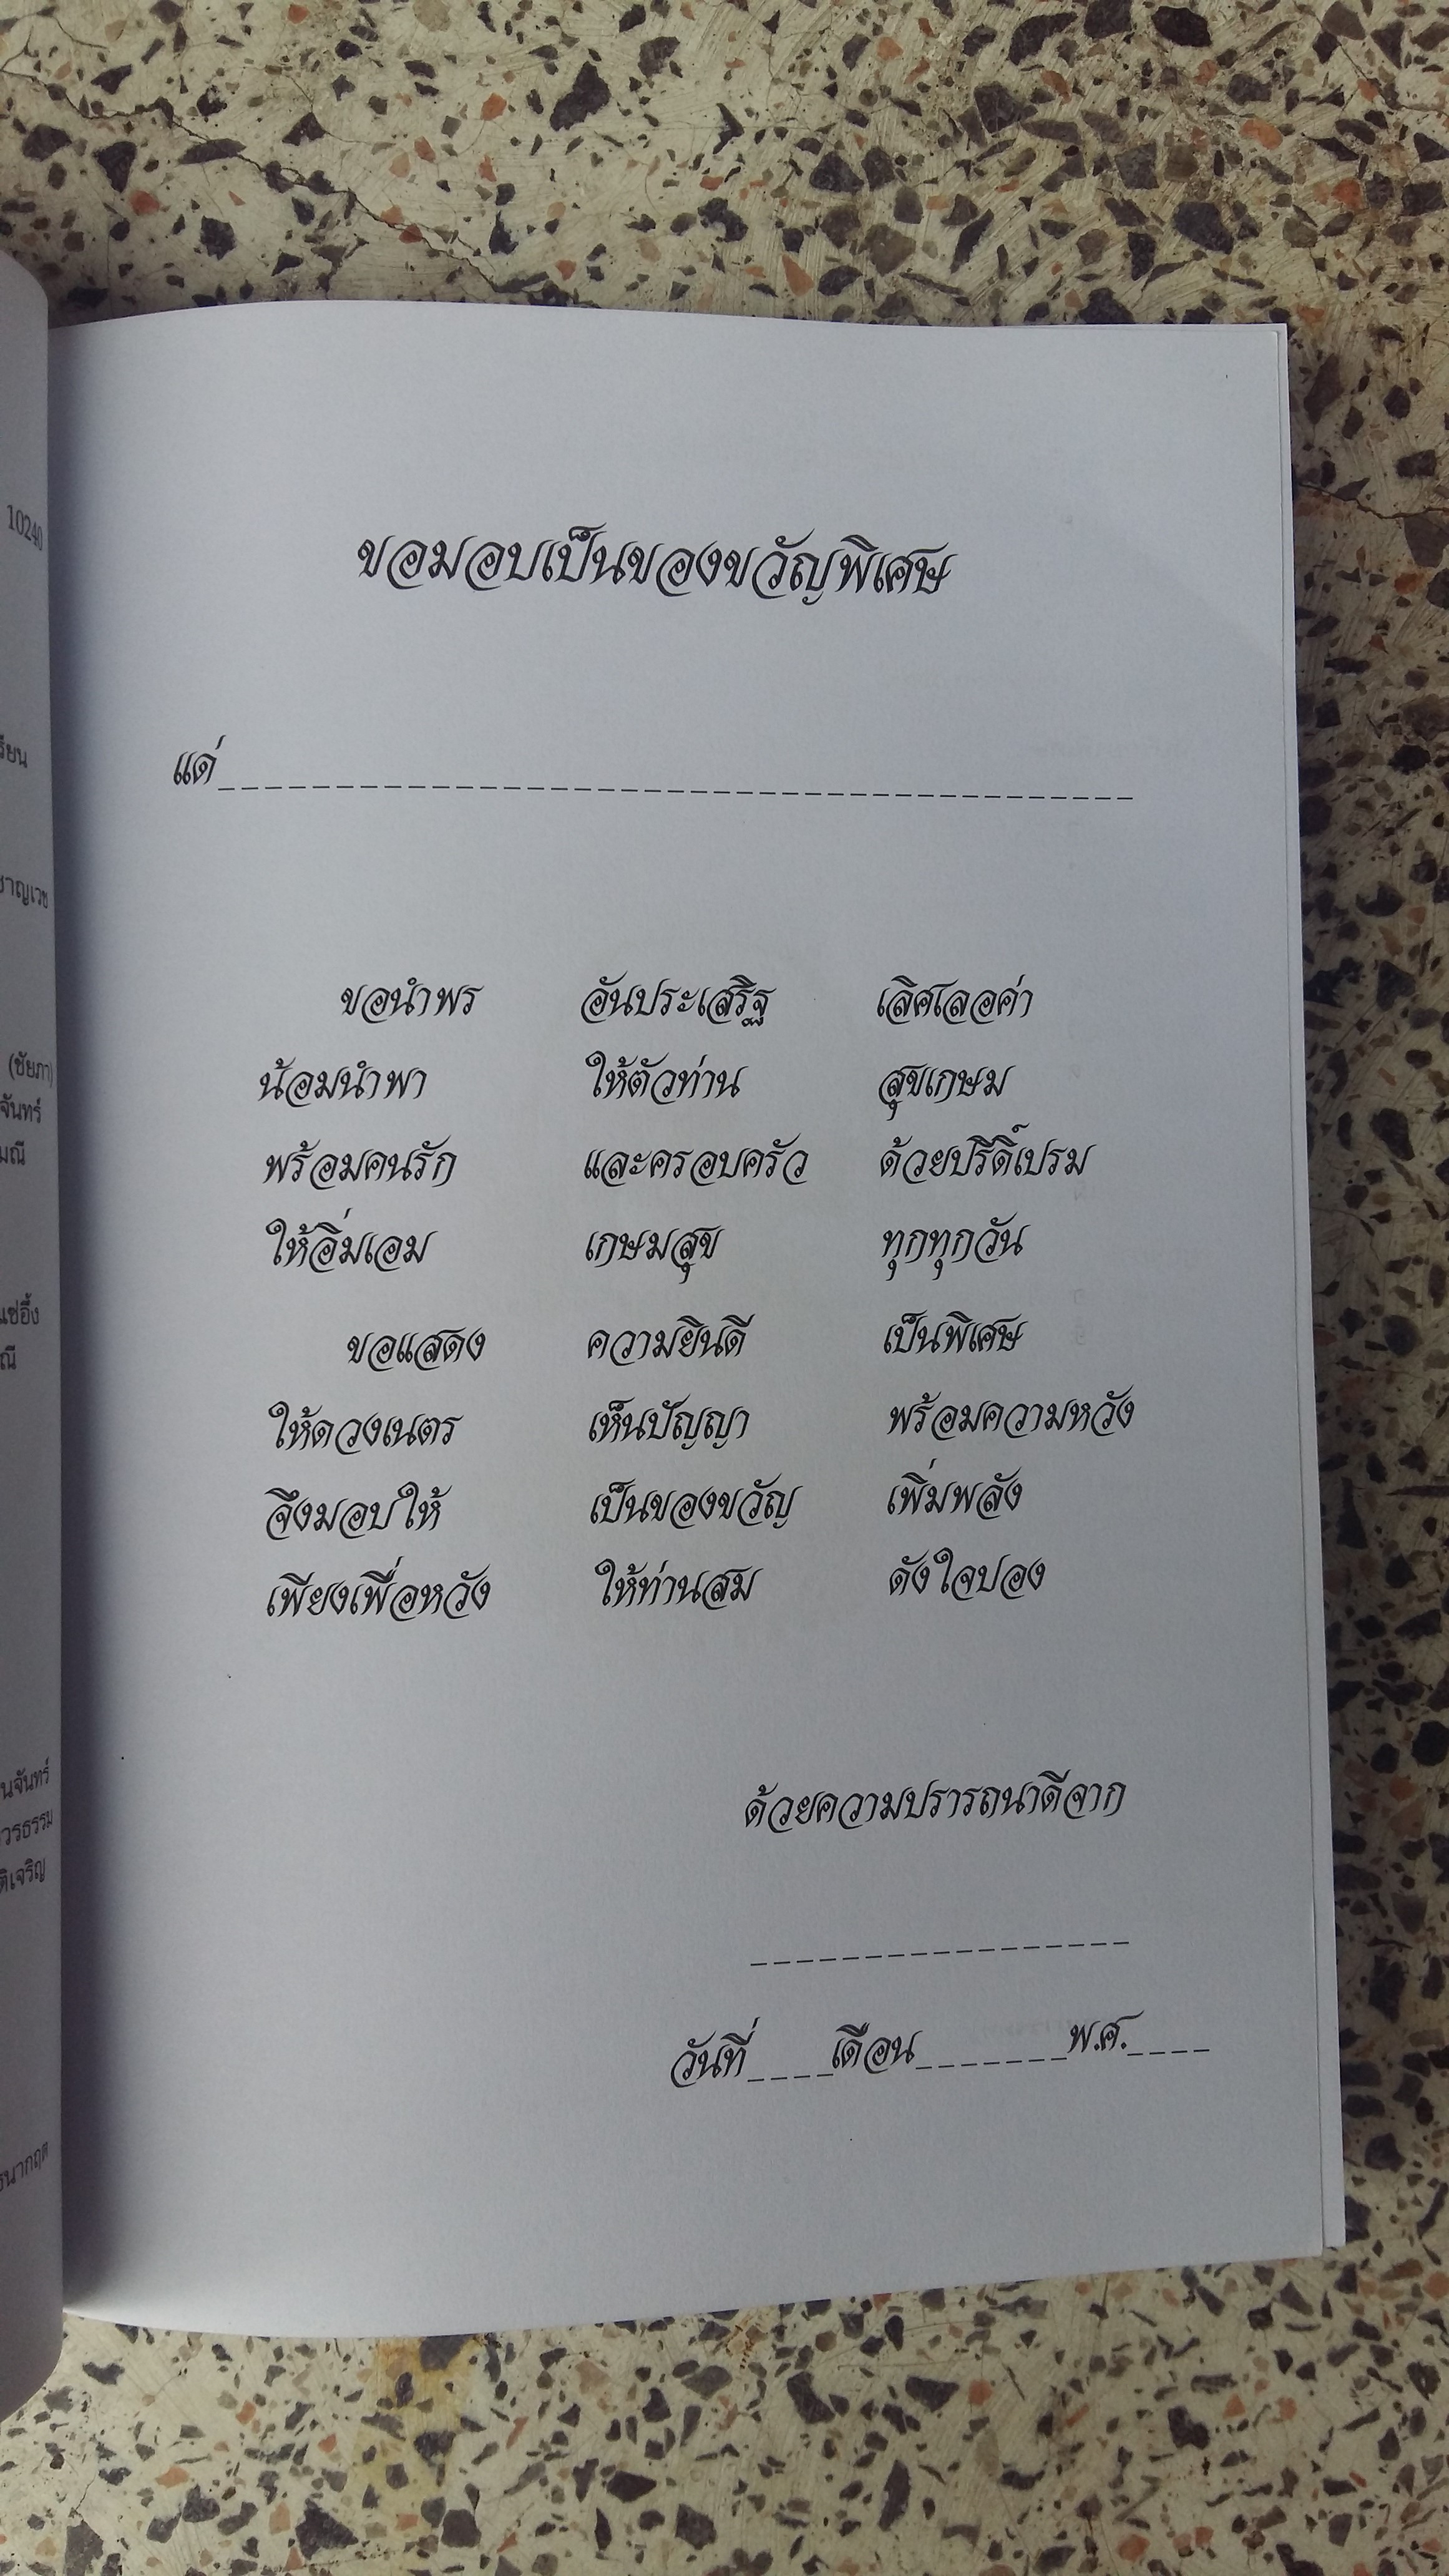 10240
ขอมอบเป็นของขวัญพิเศษ
แด่
ขอนำพร อันประเสริฐ เลิศเลอค่า
น้อมนำพา ให้ตัวท่าน สุขเกษม
พร้อมคนรัก และครอบครัว ด้วยปรีดิ์เปรม
ให้อิ่มเอม เกษมสุข ทุกทุกวัน
ขอแสดง ความยินดี เป็นพิเศษ
ให้ดวงเนตร เห็นปัญญา พร้อมความหวัง
จึงมอบให้ เป็นของขวัญ เพิ่มพลัง
เพียงเพื่อหวัง ให้ท่านสม ดังใจปอง
ด้วยความปรารถนาดีจาก
วันที่____เดือน_______พ.ศ.____
(ชัยภา)
จันทร์